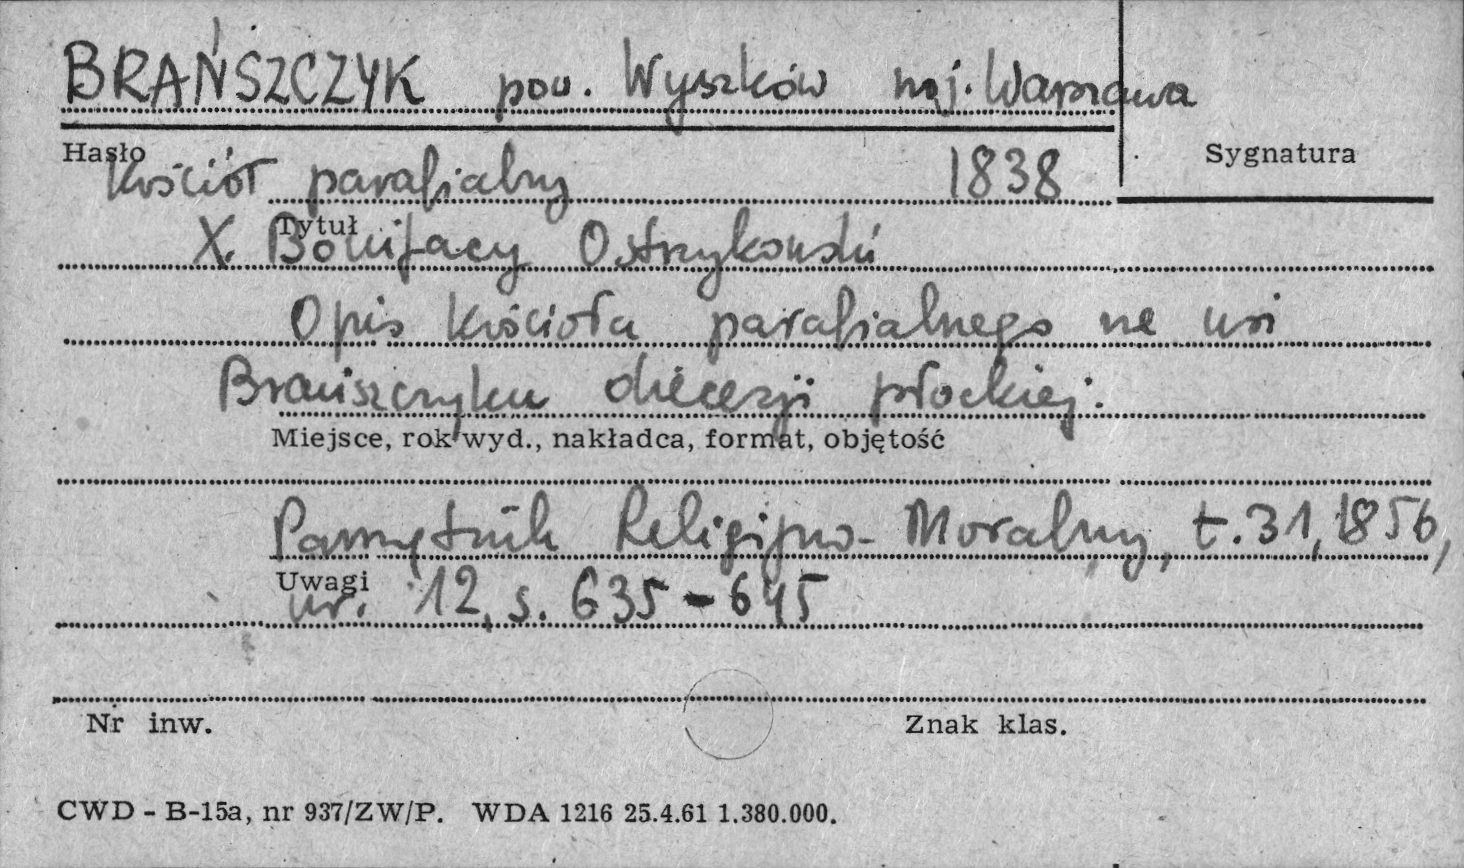 BRAŃSZCZYK pow. Wyszków woj. Warszawa
Hasło
Sygnatura
Kościół parafialny 1838
Tytuł
X. Bonifacy Ostrzykowski
Opis kościoła parafialnego we wsi
Brańszczyku diecezji płockiej.
Miejsce, rok wyd., nakładca, format, objętość
Pamiętnik Religijno-Moralny, t. 31, 1856,
Uwagi
nr. 12, s. 635-645
Nr inw.
Znak klas.
CWD - B-15a, nr 937/ZW/P. WDA 1216 25.4.61 1.380.000.